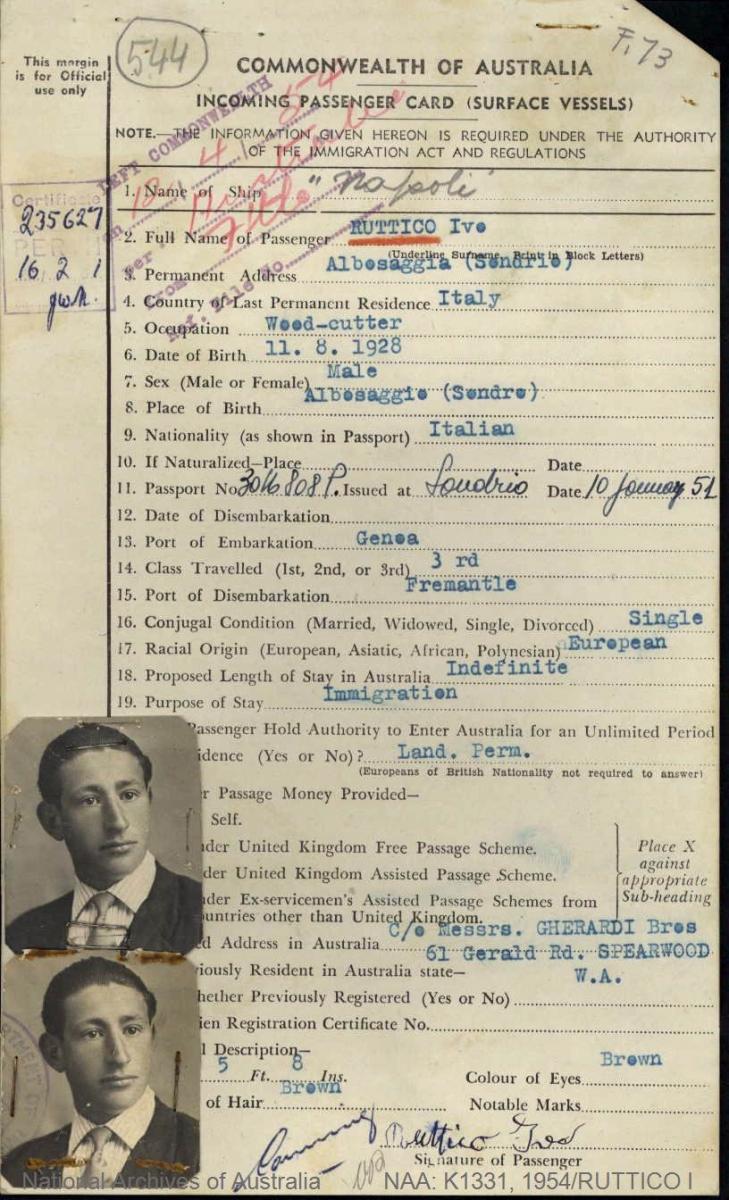 544
F. 73
This margin
is for Official
use only
COMMONWEALTH OF AUSTRALIA
INCOMING PASSENGER CARD (SURFACE VESSELS)
NOTE.—THE INFORMATION GIVEN HEREON IS REQUIRED UNDER THE AUTHORITY
OF THE IMMIGRATION ACT AND REGULATIONS
LEFT COMMONWEALTH
Certificate
235627
PER
16 2 1
1. Name of Ship "Napoli"
2. Full Name of Passenger RUTTICO Ivo
(Underline Surname, Print in Block Letters)
3. Permanent Address Albosaggia (Sondrio)
4. Country of Last Permanent Residence Italy
5. Occupation Wood-cutter
6. Date of Birth 11. 8. 1928
7. Sex (Male or Female) Male
8. Place of Birth Albosaggio (Sondro)
9. Nationality (as shown in Passport) Italian
10. If Naturalized—Place Date
11. Passport No. 3016808P. Issued at Sondrio Date 10 January 51
12. Date of Disembarkation
13. Port of Embarkation Genoa
14. Class Travelled (1st, 2nd, or 3rd) 3 rd
15. Port of Disembarkation Fremantle
16. Conjugal Condition (Married, Widowed, Single, Divorced) Single
17. Racial Origin (European, Asiatic, African, Polynesian) European
18. Proposed Length of Stay in Australia Indefinite
19. Purpose of Stay Immigration
Passenger Hold Authority to Enter Australia for an Unlimited Period
idence (Yes or No)? Land. Perm.
(Europeans of British Nationality not required to answer)
r Passage Money Provided—
Self.
der United Kingdom Free Passage Scheme.
der United Kingdom Assisted Passage Scheme.
der Ex-servicemen's Assisted Passage Schemes from
ountries other than United Kingdom.
Place X
against
appropriate
Sub-heading
d Address in Australia C/o Messrs. GHERARDI Bros
61 Gerald Rd. SPEARWOOD
W.A.
iously Resident in Australia state—
hether Previously Registered (Yes or No)
ien Registration Certificate No.
l Description—
5 Ft. 8 Ins.
Colour of Eyes Brown
of Hair Brown
Notable Marks
Ruttico Ivo
Signature of Passenger
National Archives of Australia
NAA: K1331, 1954/RUTTICO I